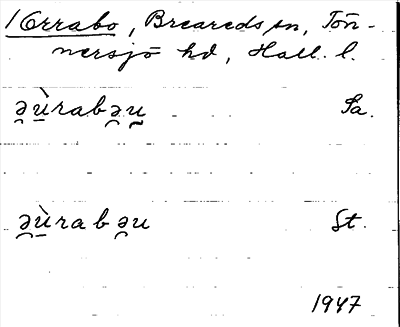 /Orrabo, Breareds sn, Tön-
nersjö hd, Hall. l.
ə̯ù̱rabə̯u̱ Sa.
ə̯ù̱rabə̯u St.
1947